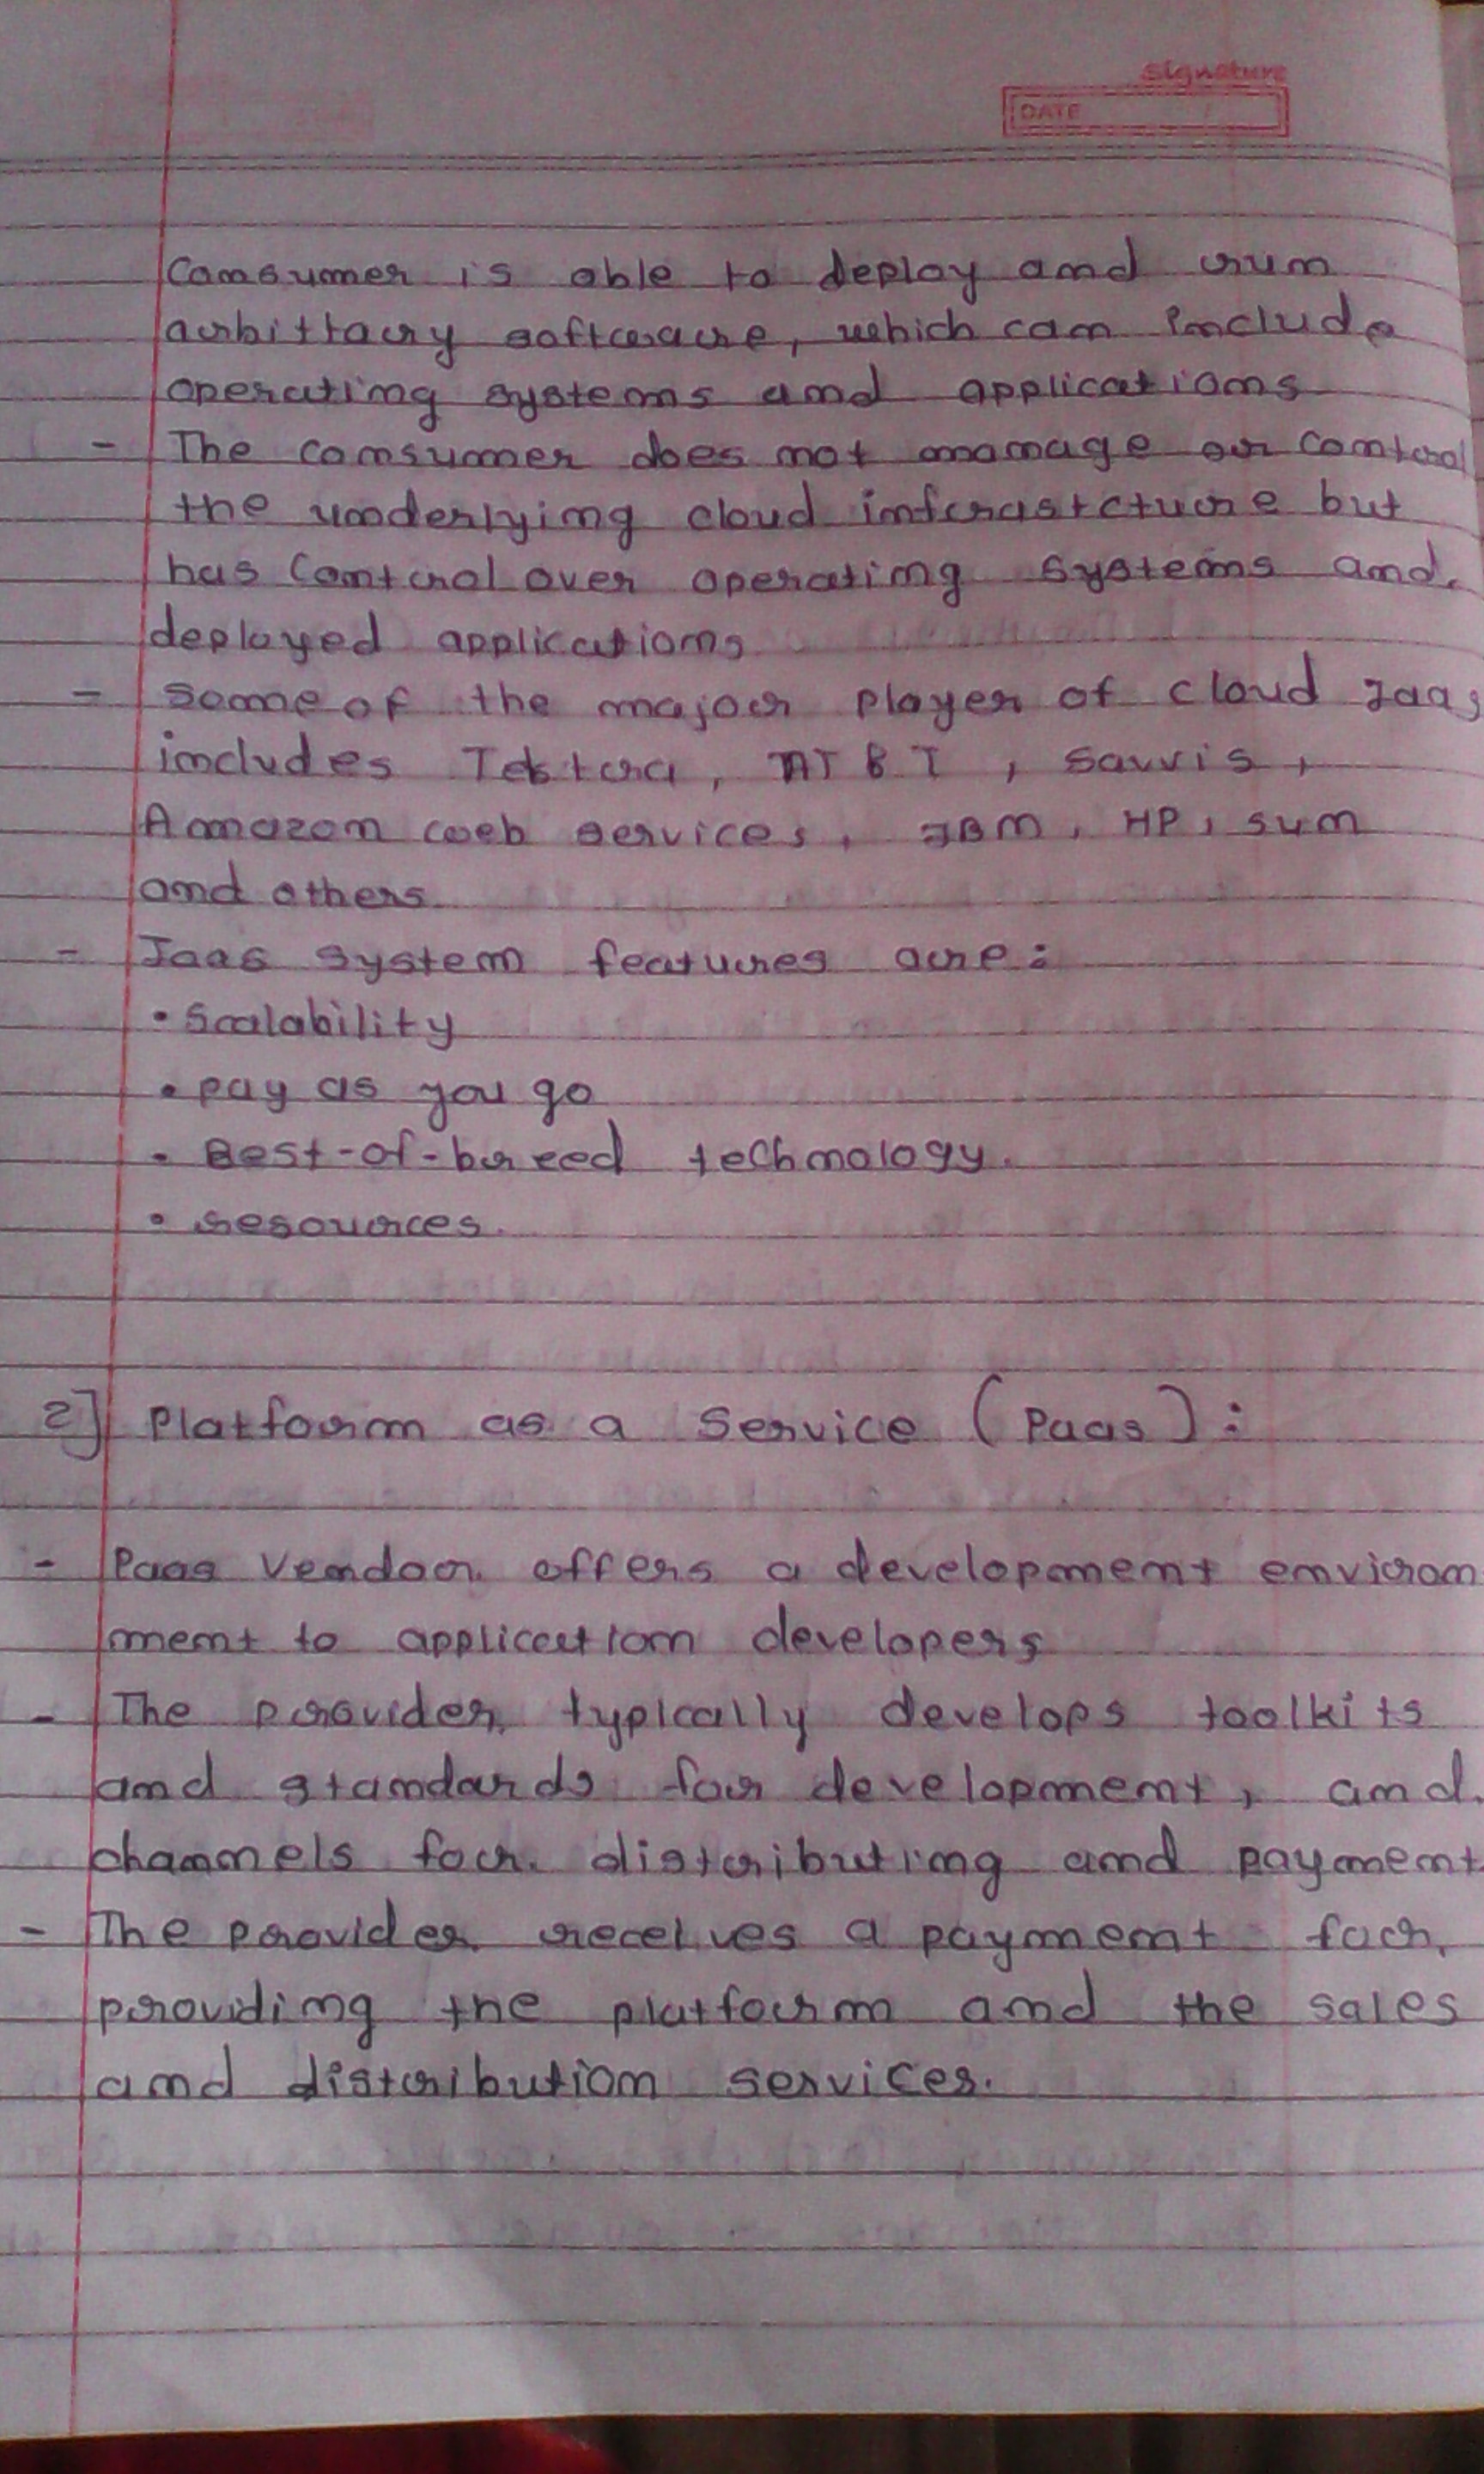 Signature
DATE
Consumer is able to deploy and run
arbittary software, which can include
operating systems and applications
- The consumer does not manage or control
the underlying cloud infrastcture but
has control over operating systems and
deployed applications
- Some of the major player of cloud Iaas
includes , AT&T, Savvis,
Amazon web services, IBM, HP, sun
and others
- Iaas system features are:
• Scalability
• pay as you go
• Best-of-breed technology.
• resources.
2] Platform as a Service (Paas):
- Paas Vendor offers a development environ
ment to application developers
- The provider typically develops toolkits
and standards for development, and
channels for distributing and payment
- The provider receives a payment for
providing the platform and the sales
and distribution services.